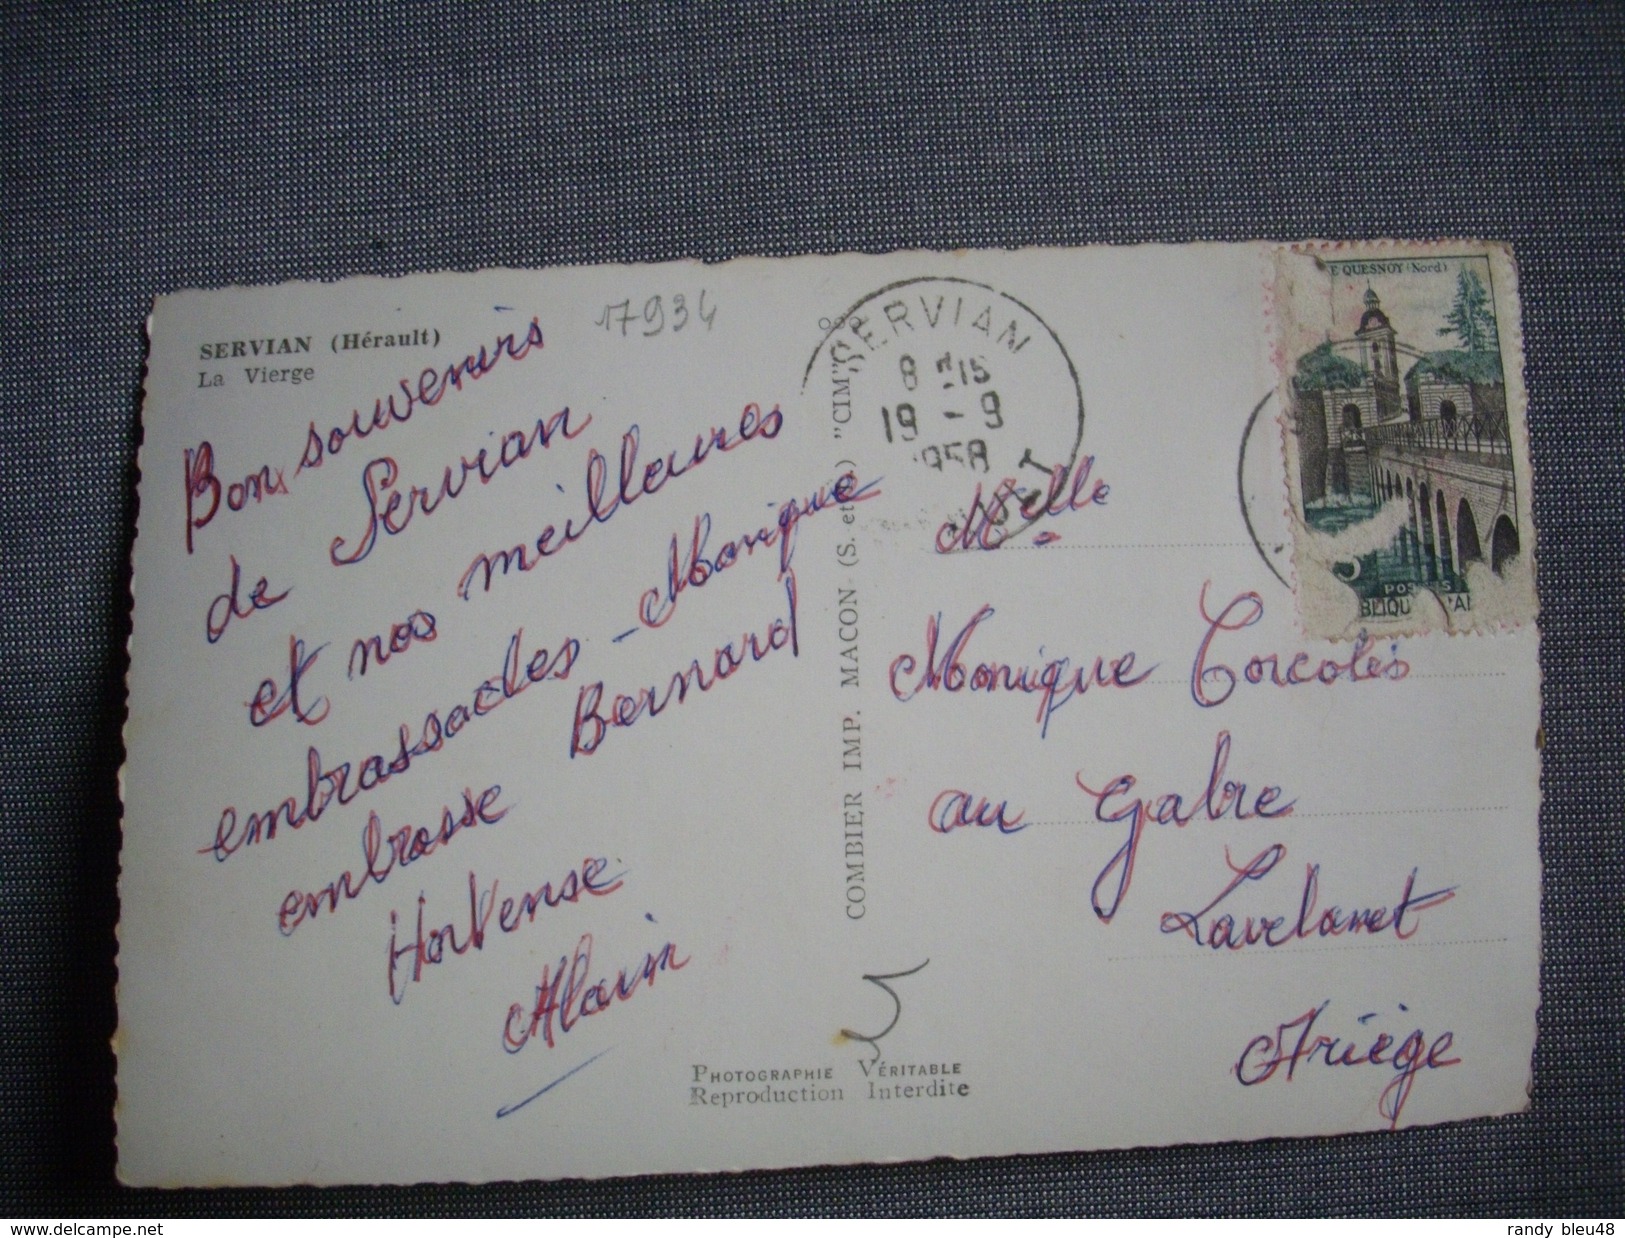 17934
SERVIAN (Hérault)
La Vierge
Bon souvenirs
de Servian
et nos meillaures
embrassades - Monique
embrasse Bernard
Hortense
Alain
COMBIER IMP. MACON (S. et L.) "CIM"
SERVIAN
8 H15
19 - 9
1958
E QUESNOY (Nord)
POSTES
Melle
Monique Corcolis
au Gabre
Lavelanet
Ariège
PHOTOGRAPHIE VÉRITABLE
Reproduction Interdite
delcampe.net
randy_bleu48